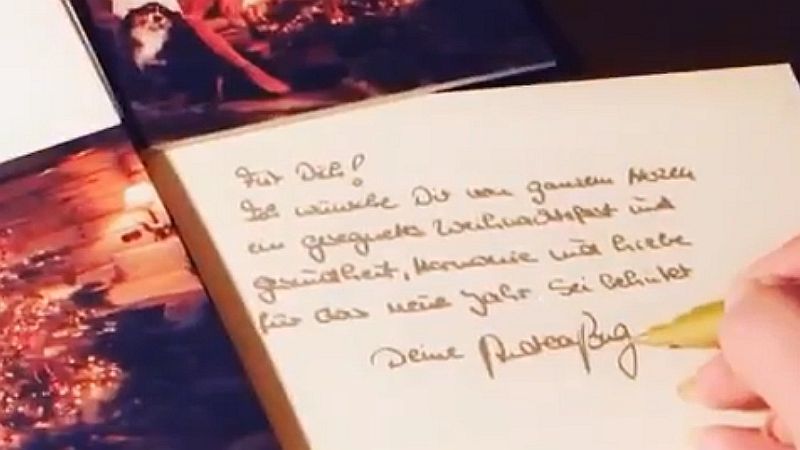 Für Dich!
Ich wünsche Dir von ganzem Herzen
ein gesegnetes Weihnachtsfest und
gesundheit, Harmonie und Liebe
für das neue Jahr. Sei behütet
Deine Andrea Berg